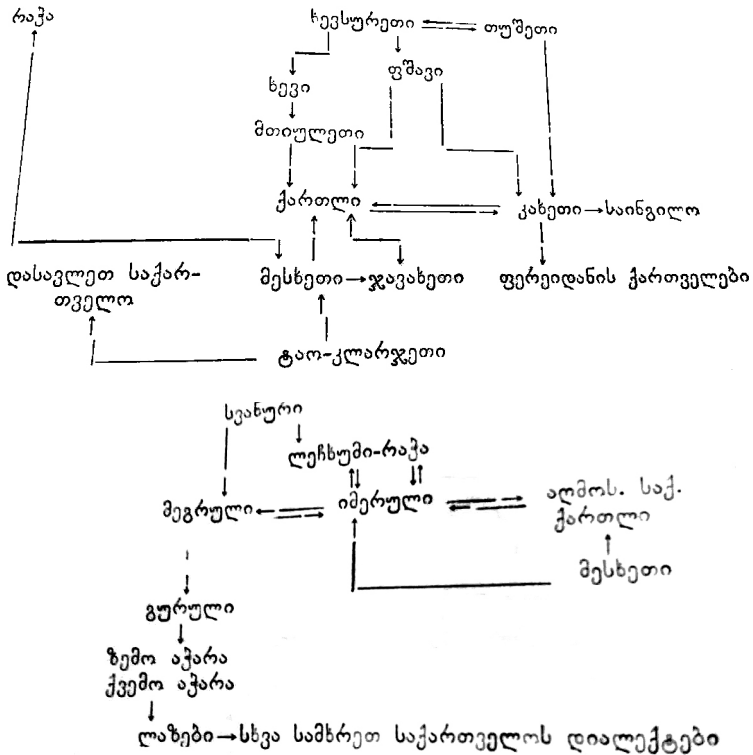 რაჭა
ხევსურეთი
თუშეთი
ფშავი
ხევი
მთიულეთი
ქართლი
კახეთი→საინგილო
დასავლეთ საქარ-
თველო
მესხეთი→ჯავახეთი
ფერეიდანის ქართველები
ტაო-კლარჯეთი
სვანური
ლეჩხუმი-რაჭა
მეგრული
იმერული
აღმოს. საქ.
ქართლი
მესხეთი
გურული
ზემო აჭარა
ქვემო აჭარა
ლაზები→სხვა სამხრეთ საქართველოს დიალექტები